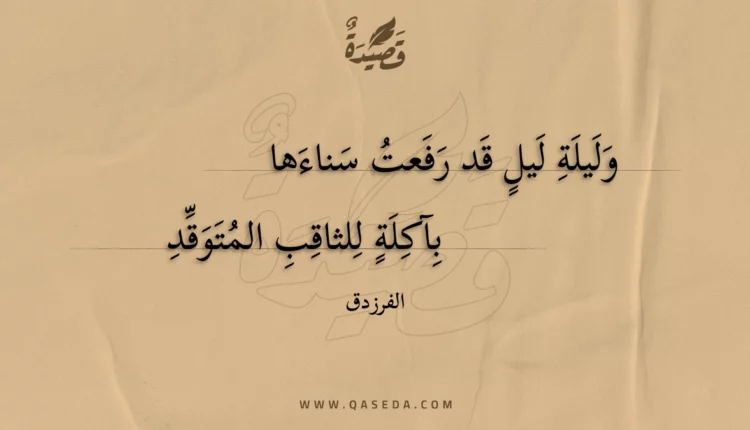 قَصِيْدَةٌ
وَلَيلَةِ لَيلٍ قَد رَفَعتُ سَناءَها
بِآكِلَةٍ لِلثاقِبِ المُتَوَقِّدِ
الفرزدق
WWW.QASEDA.COM